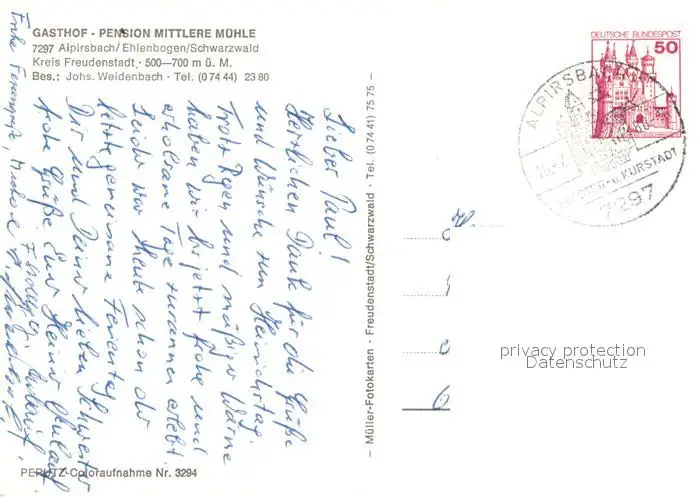 GASTHOF - PENSION MITTLERE MÜHLE
7297 Alpirsbach/Ehlenbogen/Schwarzwald
Kreis Freudenstadt · 500—700 m ü. M.
Bes.: Johs. Weidenbach · Tel. (0 74 44) 23 80
Lieber Paul!
Herzlichen Dank für die Grüße
und Wünsche zum Heinrichstag.
Trotz Regen und mäßiger Wärme
haben wir bis jetzt frohe und
erholsame Tage zusammen erlebt.
Leider war heute schon der
letzte gemeinsame Ferientag.
Dir und Deiner lieben Schwester
frohe Grüße Euer Heinz
Frohe Feriengrüße,
PERUTZ-Coloraufnahme Nr. 3294
— Müller-Fotokarten · Freudenstadt/Schwarzwald · Tel. (0 74 41) 75 75 —
DEUTSCHE BUNDESPOST
50
ALPIRSBACH
KLOSTER- u. KURSTADT
7297
privacy protection
Datenschutz